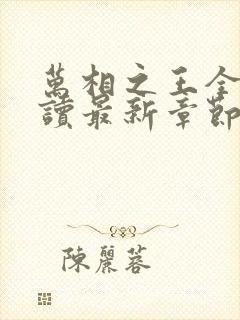 萬相之王全
讀最新章節
陳麗蓉